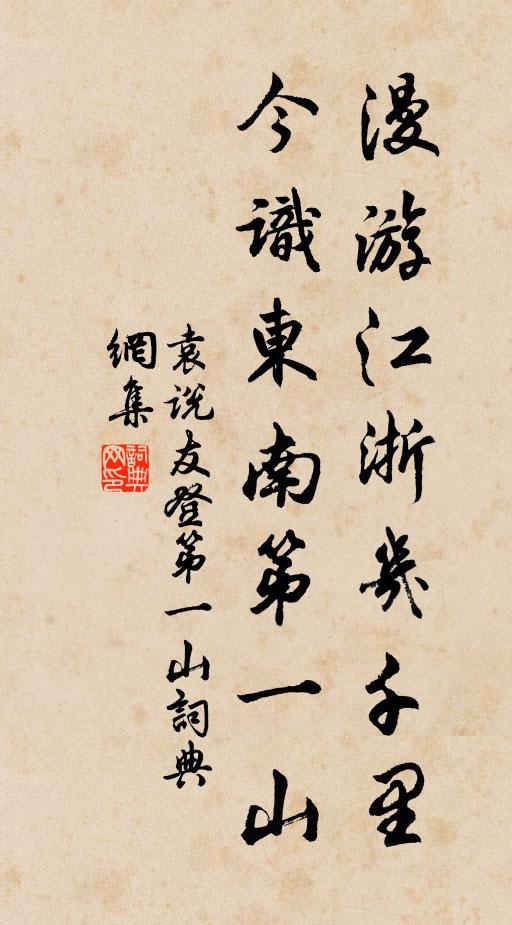 漫游江浙幾千里
今識東南第一山
袁說友登第一山詞典
網集
詞典
网印